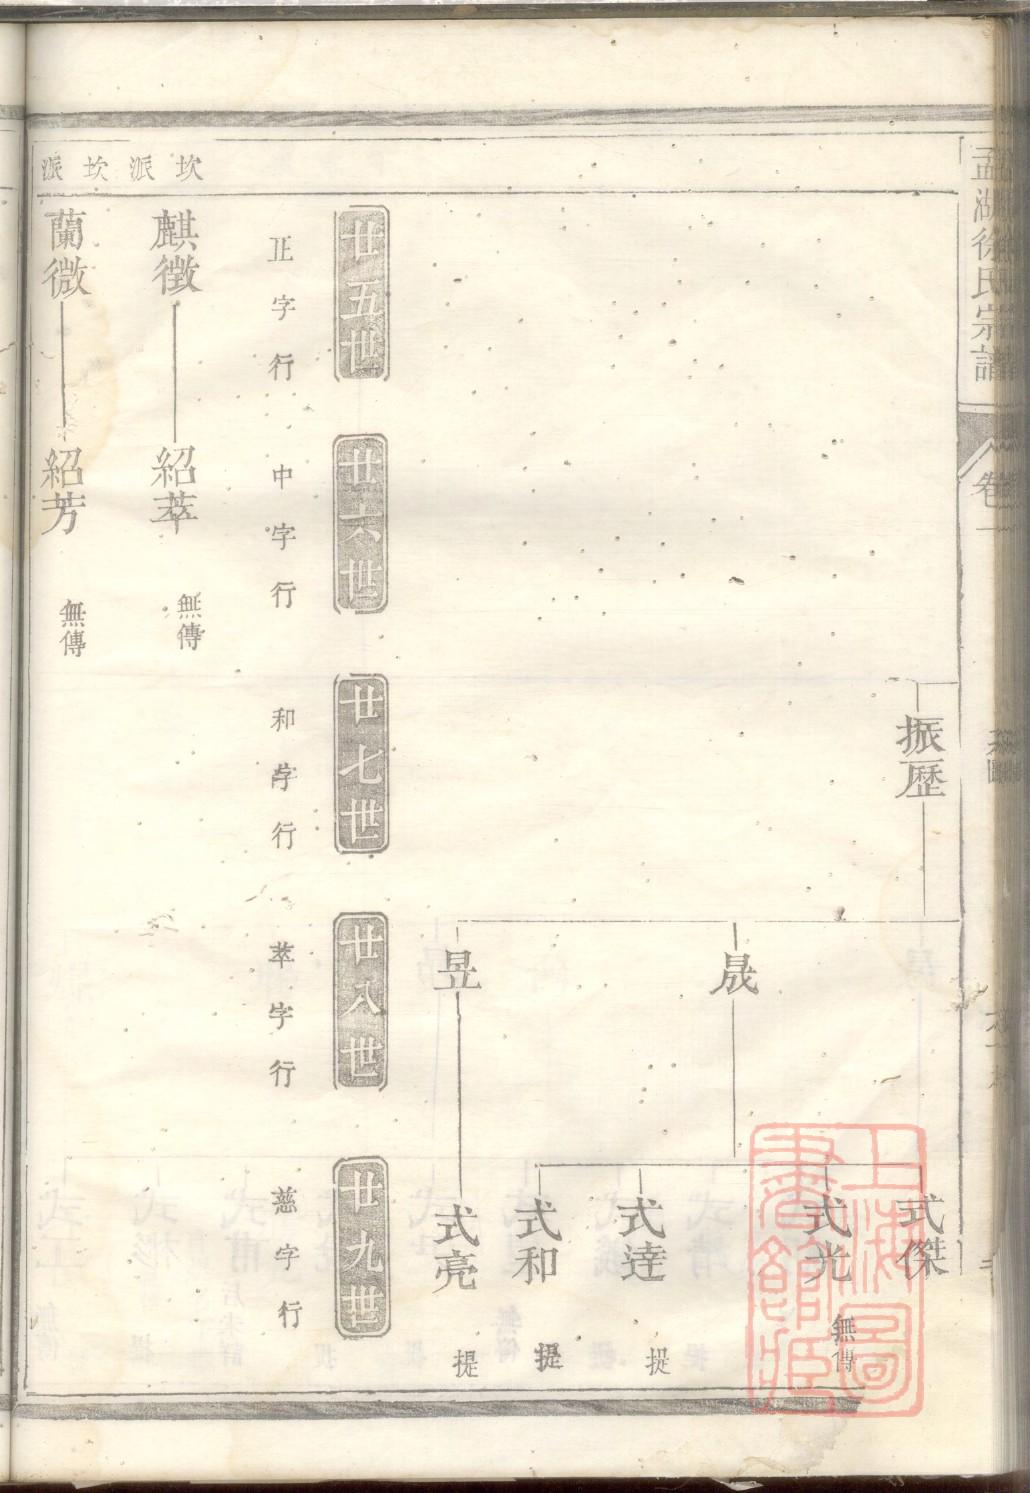 孟湖徐氏宗譜
卷一
振歷
晟
昱
式傑
式光 無傳
式達 提
式和 提
式亮 提
廿五世
廿六世
廿七世
廿八世
廿九世
正字行
中字行
和字行
萃字行
慈字行
坎派
麒徵
紹萃
無傳
坎派
蘭徵
紹芳
無傳
上海圖書館藏